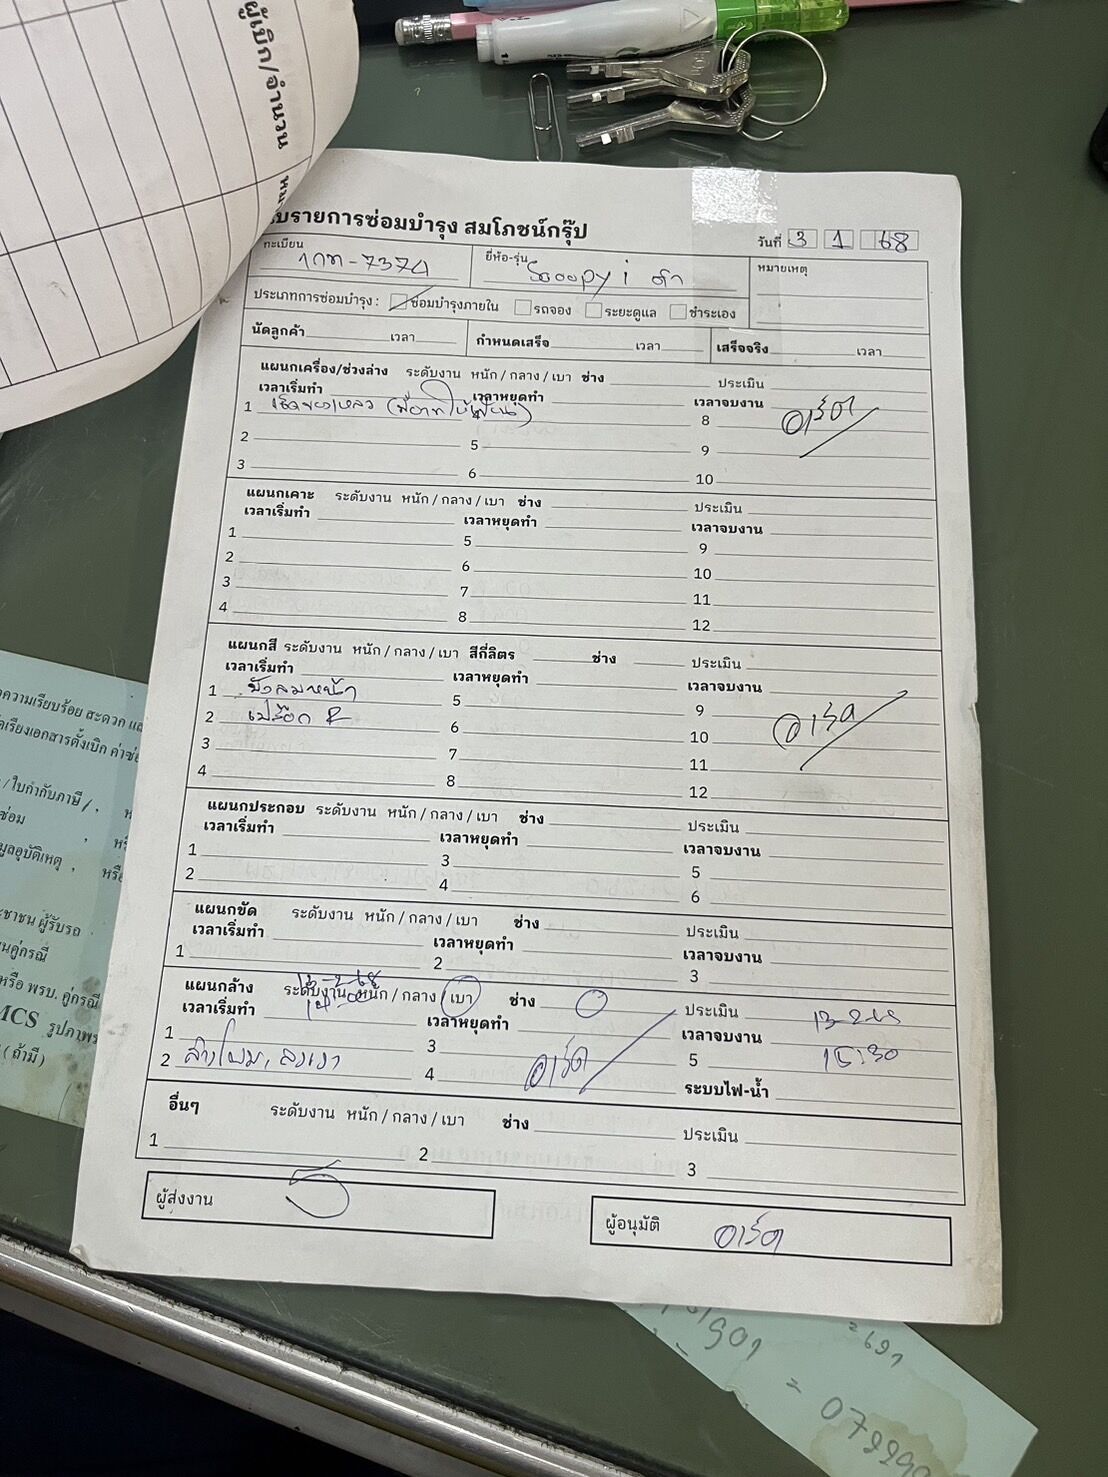 ผู้เบิก/จำนวน
ใบรายการซ่อมบำรุง สมโภชน์กรุ๊ป
วันที่ 3 1 68
ทะเบียน 1กท-7374 ยี่ห้อ-รุ่น Scoopy i ดำ หมายเหตุ
ประเภทการซ่อมบำรุง : ซ่อมบำรุงภายใน รถจอง ระยะดูแล ชำระเอง
นัดลูกค้า เวลา กำหนดเสร็จ เวลา เสร็จจริง เวลา
แผนกเครื่อง/ช่วงล่าง ระดับงาน หนัก / กลาง / เบา ช่าง ประเมิน
เวลาเริ่มทำ เวลาหยุดทำ เวลาจบงาน
1 เช็คของเหลว 8 อาร์ต
2 5 9
3 6 10
แผนกเคาะ ระดับงาน หนัก / กลาง / เบา ช่าง ประเมิน
เวลาเริ่มทำ เวลาหยุดทำ เวลาจบงาน
1 5 9
2 6 10
3 7 11
4 8 12
แผนกสี ระดับงาน หนัก / กลาง / เบา สีกี่ลิตร ช่าง ประเมิน
เวลาเริ่มทำ เวลาหยุดทำ เวลาจบงาน
1 บังลมหน้า 5 9
2 เปลือก R 6 10 อาร์ต
3 7 11
4 8 12
แผนกประกอบ ระดับงาน หนัก / กลาง / เบา ช่าง ประเมิน
เวลาเริ่มทำ เวลาหยุดทำ เวลาจบงาน
1 3 5
2 4 6
แผนกขัด ระดับงาน หนัก / กลาง / เบา ช่าง ประเมิน
เวลาเริ่มทำ เวลาหยุดทำ เวลาจบงาน
1 2 3
แผนกล้าง ระดับงาน หนัก / กลาง / เบา ช่าง ประเมิน 13-2-68
เวลาเริ่มทำ เวลาหยุดทำ เวลาจบงาน 15:30
1 3 5
2 ล้างโฟม, ลงเงา 4 อาร์ต ระบบไฟ-น้ำ
อื่นๆ ระดับงาน หนัก / กลาง / เบา ช่าง ประเมิน
1 2 3
ผู้ส่งงาน ผู้อนุมัติ อาร์ต
ความเรียบร้อย สะดวก
เรียงเอกสารตั้งเบิก
/ ใบกำกับภาษี / ,
ซ่อม ,
มูลอุบัติเหตุ , หรือ
ผู้รับรถ
คู่กรณี
หรือ พรบ. คู่กรณี
MCS รูปภาพ
(ถ้ามี)